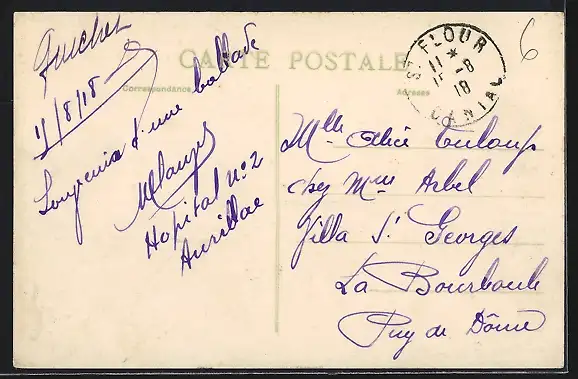 CARTE POSTALE
Correspondance
Adresse
ST FLOUR
11 - 8
18
CANTAL
6
11/8/18
Souvenir d'une ballade
Hopital no 2
Aurillac
Mlle Alice Touloup
chez Mme Arbel
Villa St Georges
La Bourboule
Puy de Dôme